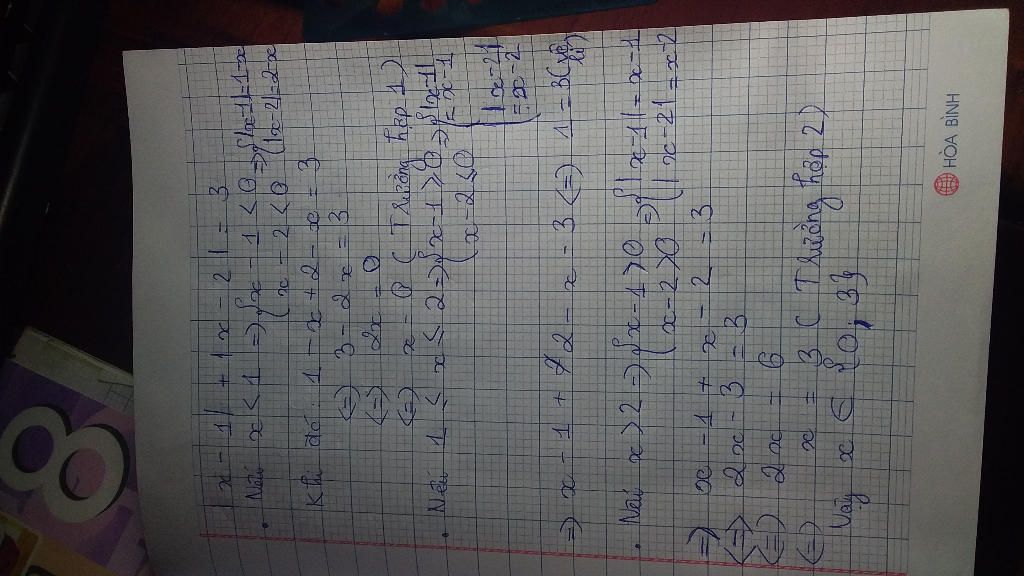 |x-1| + |x-2| = 3
• Nếu x < 1 => { x-1 < 0 => { |x-1| = 1-x
x-2 < 0 |x-2| = 2-x
Khi đó: 1-x+2-x = 3
<=> 3-2x = 3
<=> 2x = 0
<=> x = 0 ( Trường hợp 1)
• Nếu 1 ≤ x ≤ 2 => { x-1 ≥ 0 => { |x-1| = x-1
x-2 ≤ 0 |x-2| = x-2
=> x-1 + 2-x = 3 <=> 1 = 3 (vô lí)
• Nếu x > 2 => { x-1 > 0 => { |x-1| = x-1
x-2 > 0 |x-2| = x-2
=> x-1 + x-2 = 3
<=> 2x-3 = 3
<=> 2x = 6
<=> x = 3 ( Trường hợp 2)
Vậy x ∈ {0; 3}
HÒA BÌNH
8